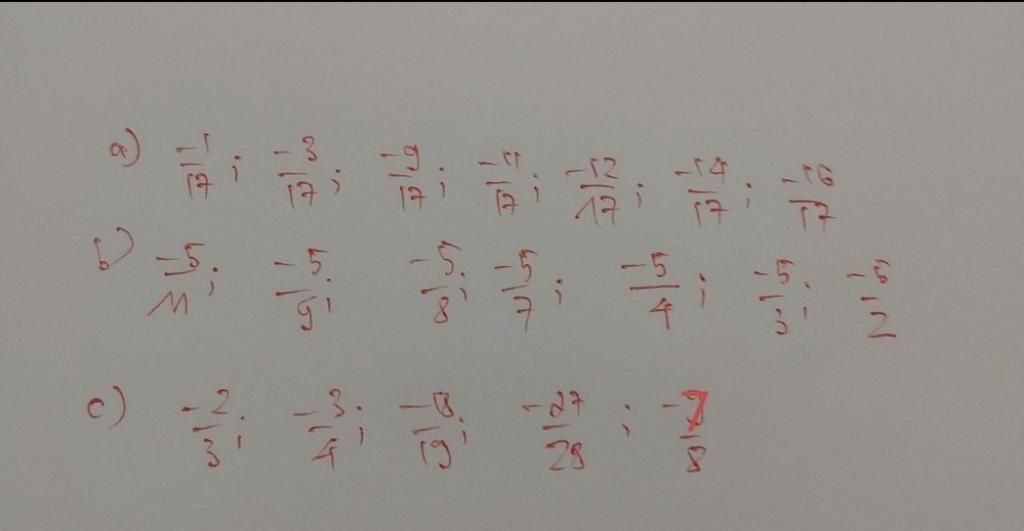 a) -1/17; -3/17; -9/17; -11/17; -12/17; -14/17; -16/17
b) -5/11; -5/9; -5/8; -5/7; -5/4; -5/3; -5/2
c) -2/3; -3/4; -18/19; -27/28; -7/8